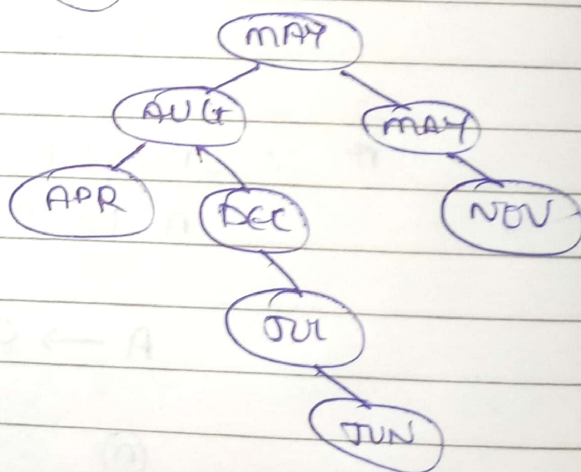 MAY
AUG MAY
APR DEC NOV
JUL
JUN